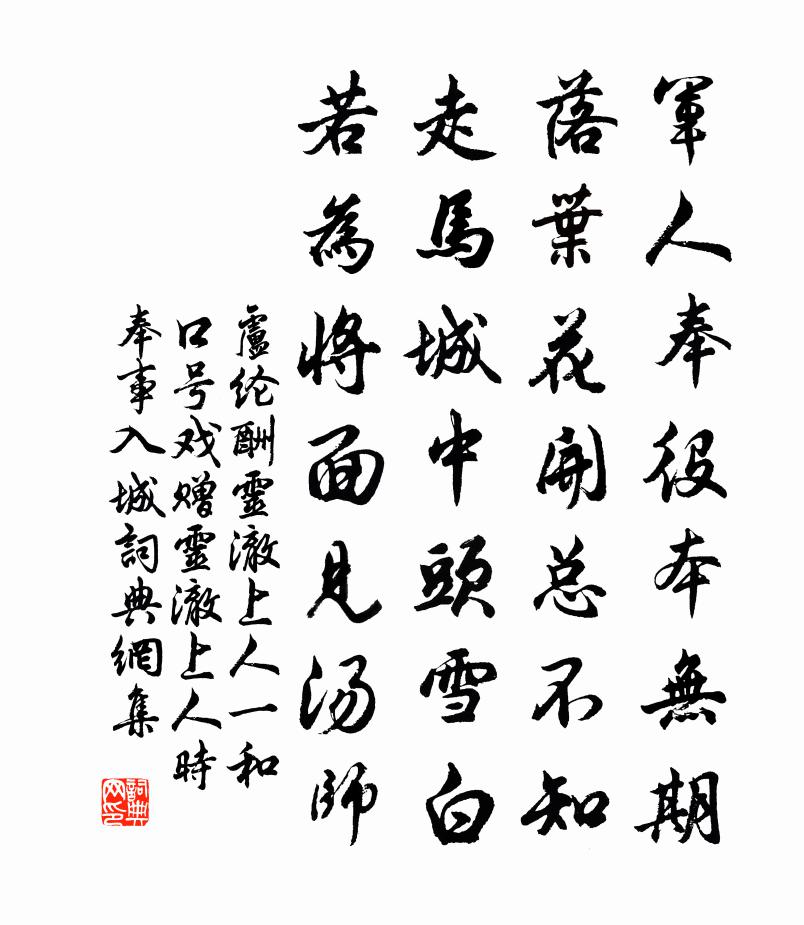 軍人奉役本無期
落葉花開总不知
走馬城中頭雪白
若為将面見汤師
盧纶酬靈澈上人一和
口号戏赠靈澈上人時
奉事入城詞典網集
詞典网印